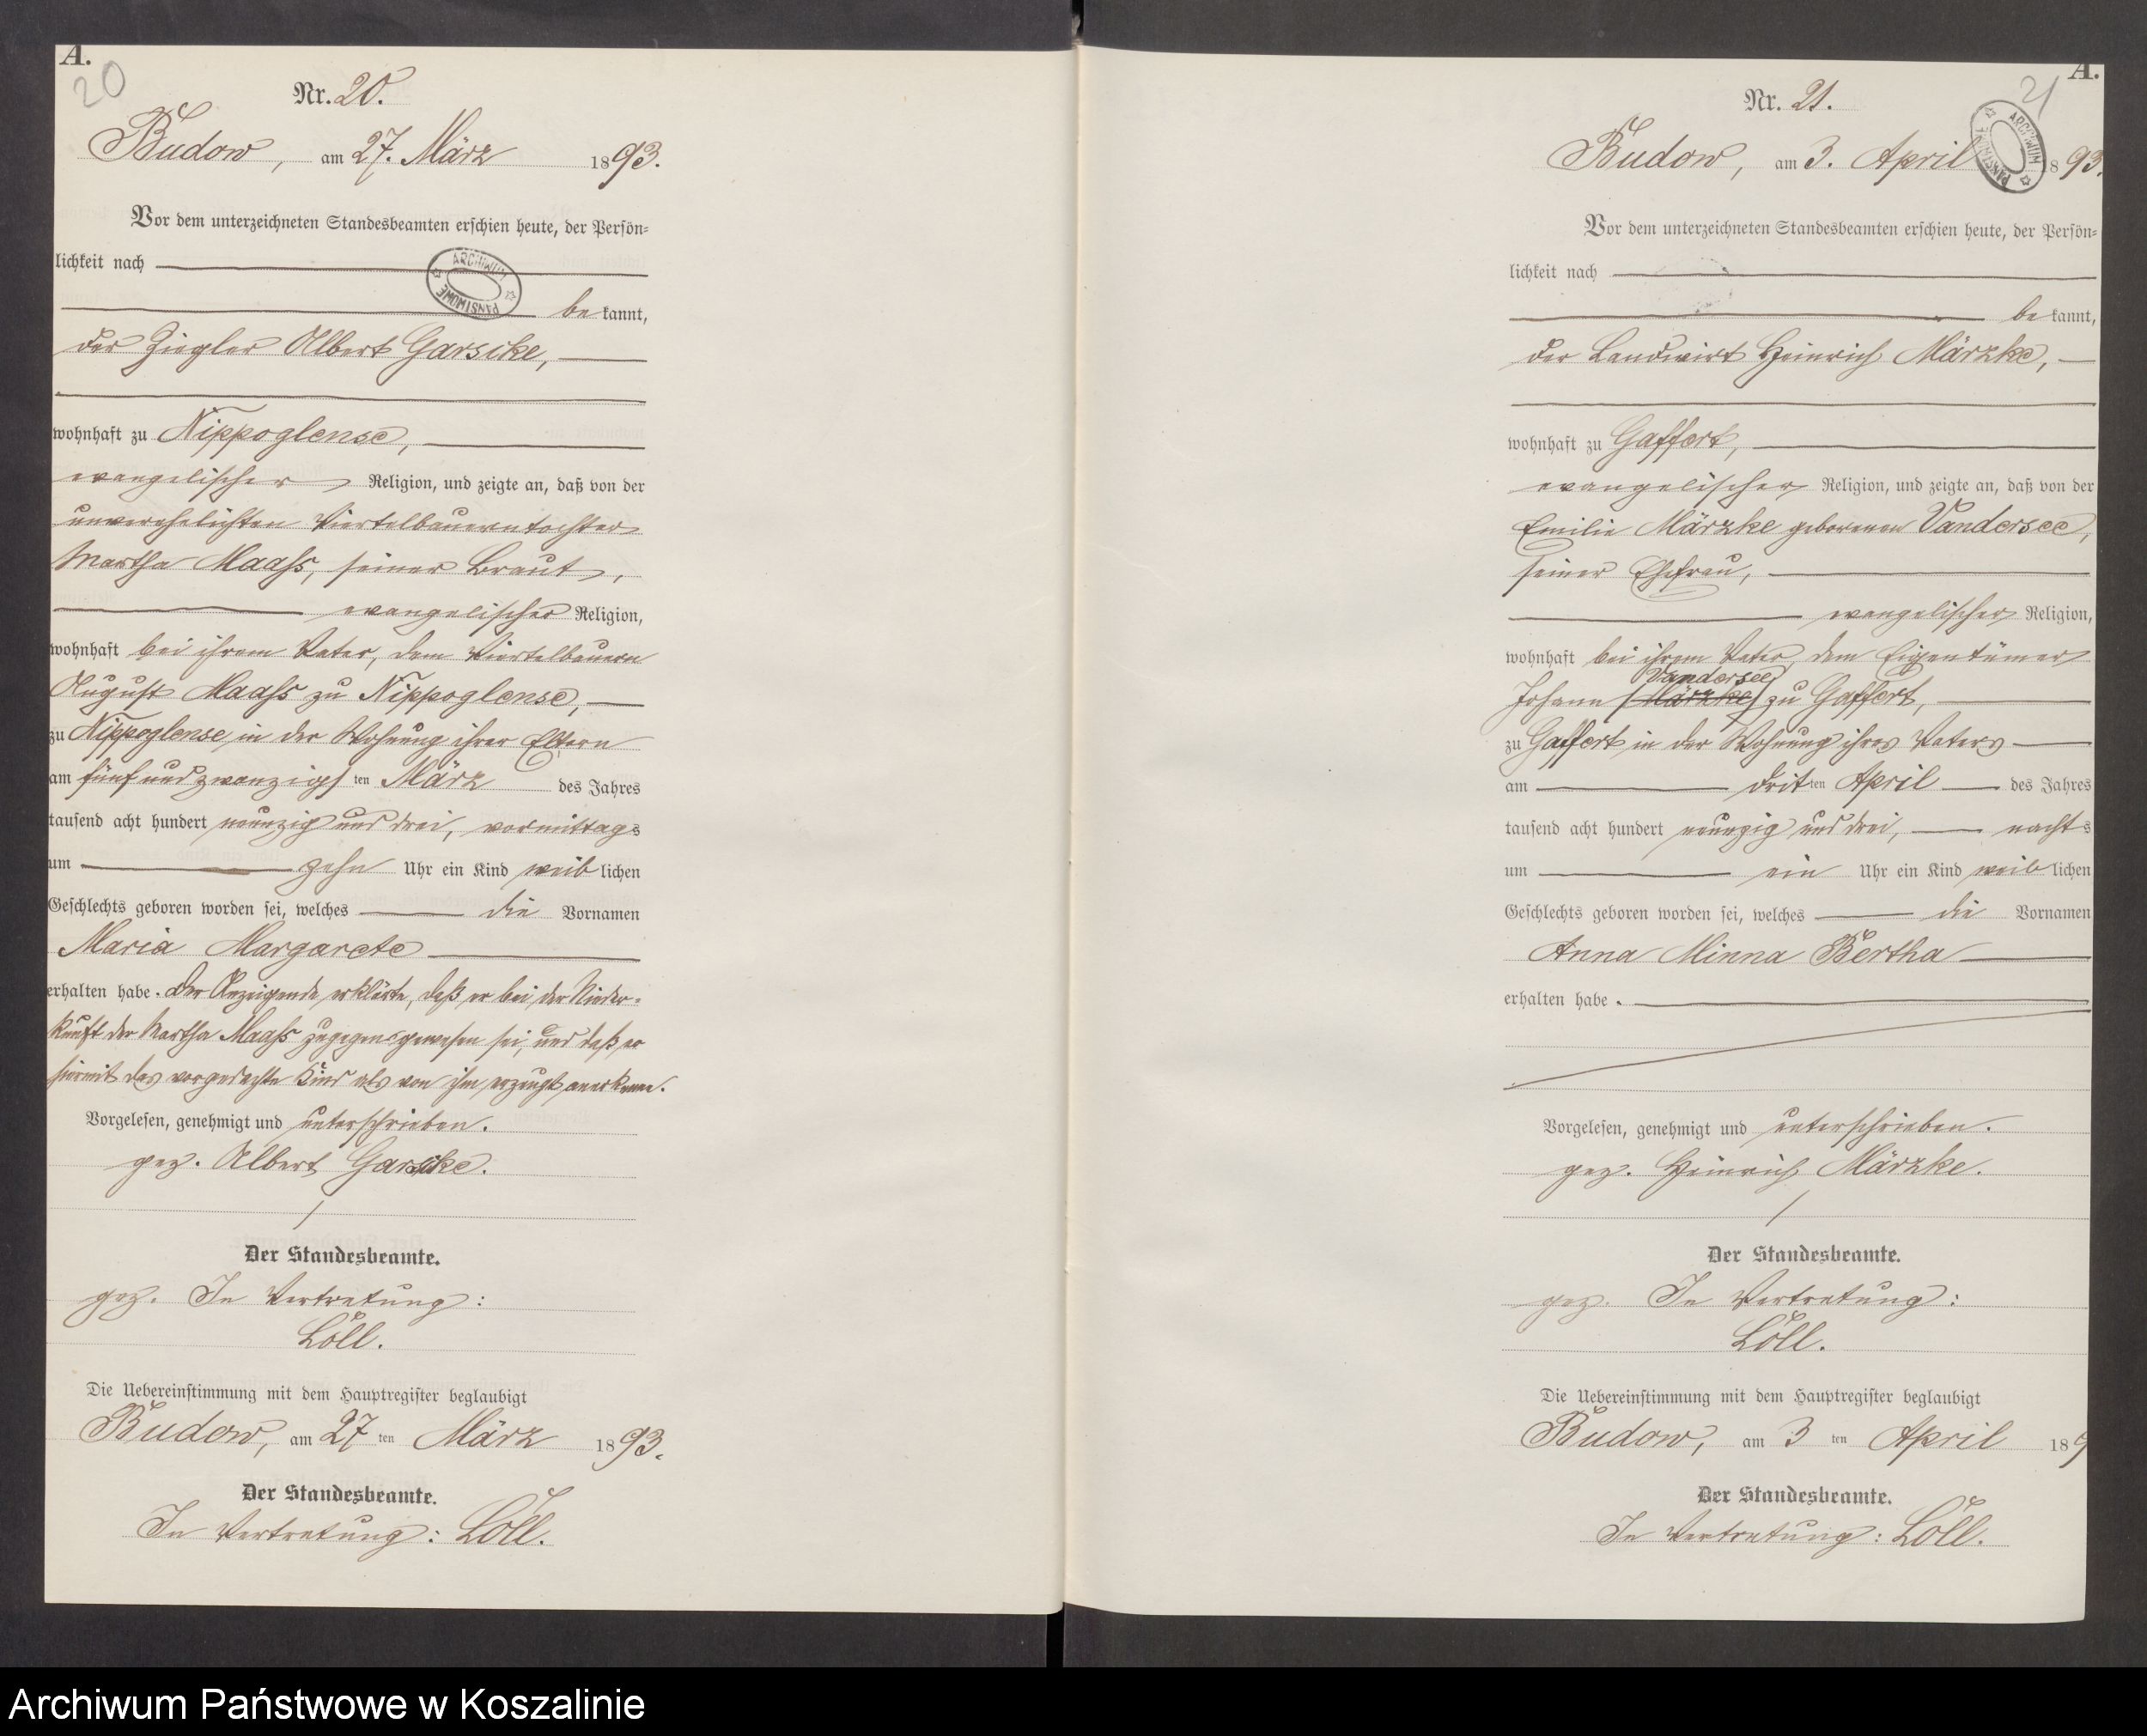 A.
20
Nr. 20.
Budow, am 27. März 1893.
Vor dem unterzeichneten Standesbeamten erschien heute, der Persön-
lichkeit nach
ARCHIWUM PAŃSTWOWE
bekannt,
der Ziegler Albert Garscke,
wohnhaft zu Nippoglense,
evangelischer Religion, und zeigte an, daß von der
unverehelichten Viertelbauerntochter
Martha Maaß, seiner Braut,
evangelischer Religion,
wohnhaft bei ihrem Vater, dem Viertelbauern
August Maaß zu Nippoglense,
zu Nippoglense, in der Wohnung ihrer Eltern
am fünf und zwanzigsten März des Jahres
tausend acht hundert neunzig und drei, vormittags
um zehn Uhr ein Kind weiblichen
Geschlechts geboren worden sei, welches die Vornamen
Maria Margarete
erhalten habe. Der Anzeigende erklärte, daß er bei der Nieder-
kunft der Martha Maaß zugegen gewesen sei, und daß er
hiermit das vorgedachte Kind als von ihm erzeugt anerkenne.
Vorgelesen, genehmigt und unterschrieben.
gez. Albert Garscke.
Der Standesbeamte.
gez. In Vertretung:
Löll.
Die Uebereinstimmung mit dem Hauptregister beglaubigt
Budow, am 27ten März 1893.
Der Standesbeamte.
In Vertretung: Löll.
A.
21
Nr. 21.
ARCHIWUM PAŃSTWOWE
Budow, am 3. April 1893.
Vor dem unterzeichneten Standesbeamten erschien heute, der Persön-
lichkeit nach
bekannt,
der Landwirt Heinrich Märzke,
wohnhaft zu Gaffert,
evangelischer Religion, und zeigte an, daß von der
Emilie Märzke geborenen Vandersee,
seiner Ehefrau,
evangelischer Religion,
wohnhaft bei ihrem Vater, dem Eigentümer
Vandersee
Johann (Märzke) zu Gaffert,
zu Gaffert in der Wohnung ihres Vaters
am dritten April des Jahres
tausend acht hundert neunzig und drei, nachts
um ein Uhr ein Kind weiblichen
Geschlechts geboren worden sei, welches die Vornamen
Anna Minna Bertha
erhalten habe.
Vorgelesen, genehmigt und unterschrieben.
gez. Heinrich Märzke.
Der Standesbeamte.
gez. In Vertretung:
Löll.
Die Uebereinstimmung mit dem Hauptregister beglaubigt
Budow, am 3ten April 189
Der Standesbeamte.
In Vertretung: Löll.
Archiwum Państwowe w Koszalinie